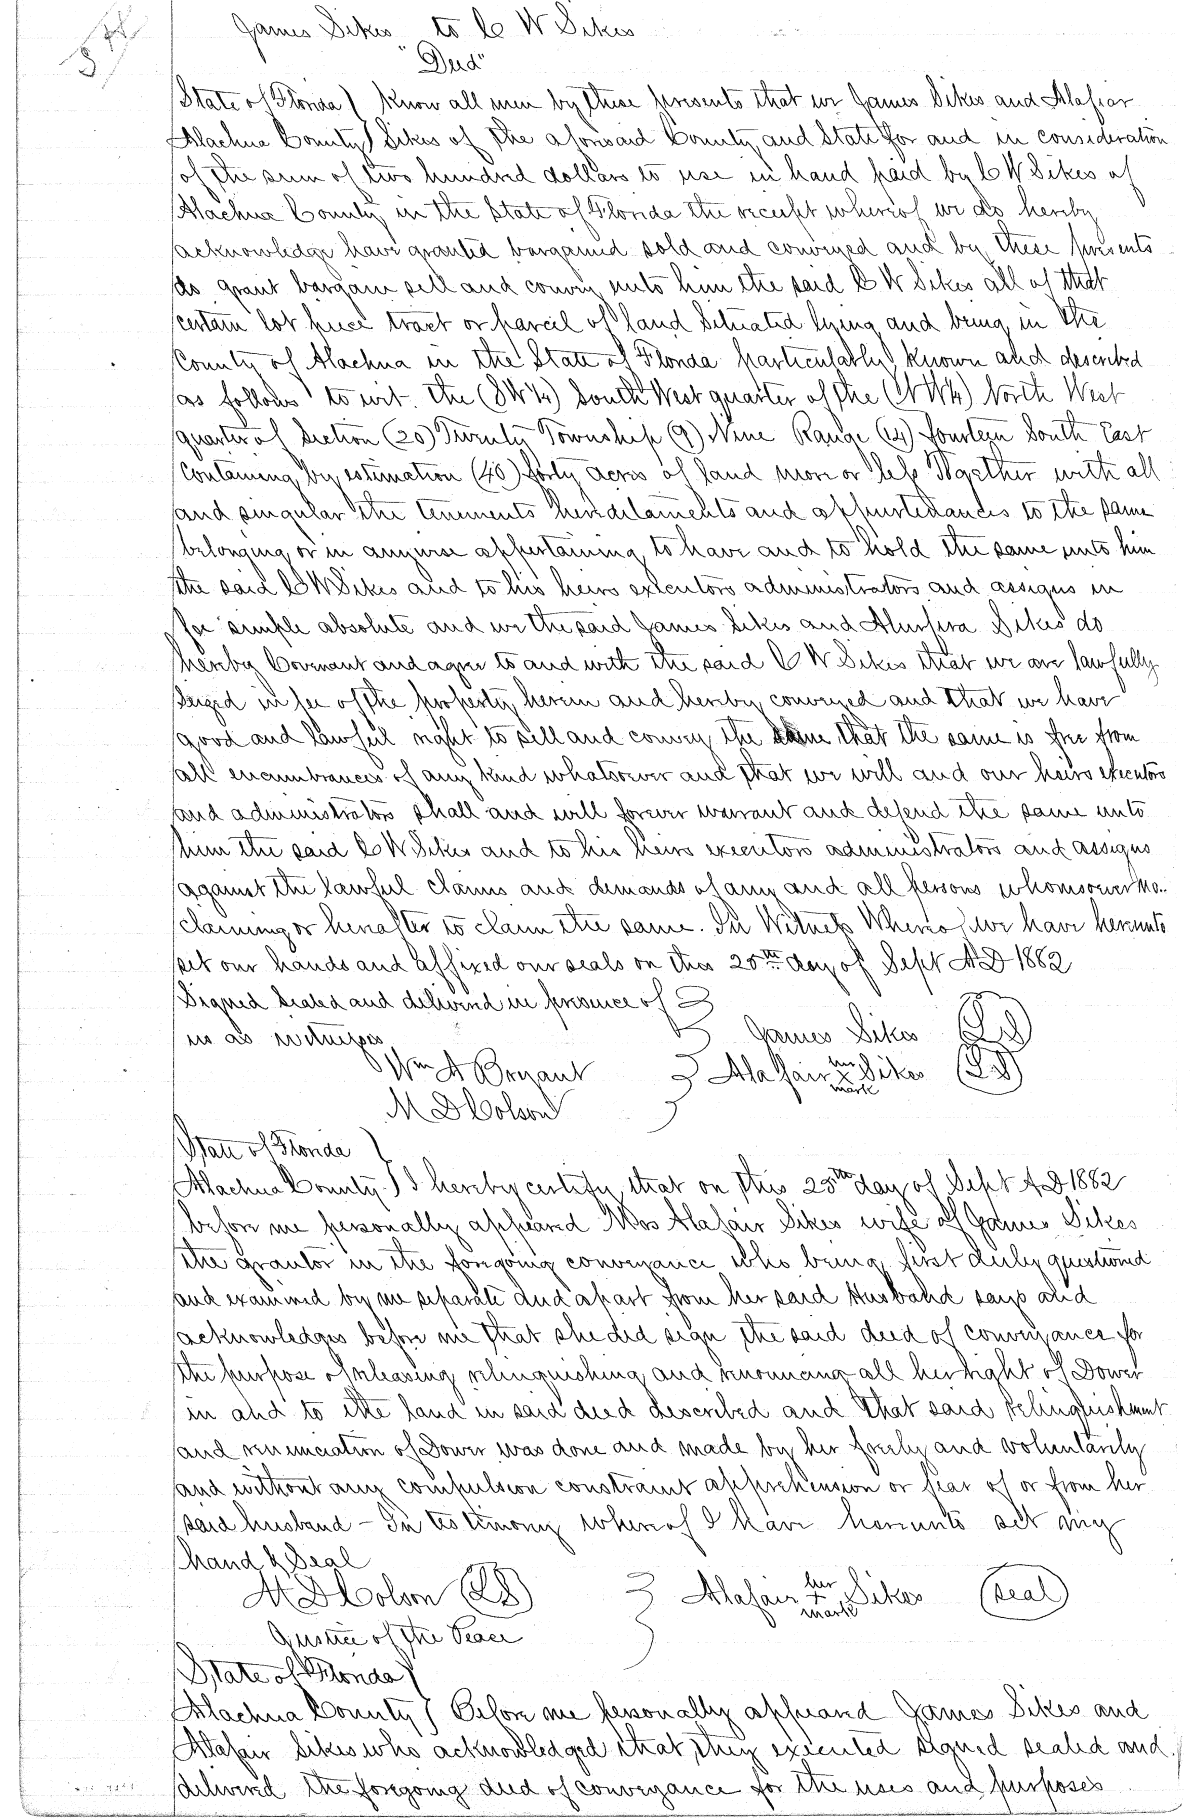 James Sikes to C W Sikes
"Deed"
State of Florida } Know all men by these presents that we James Sikes and Alafiar
Alachua County } Sikes of the aforesaid County and State for and in consideration
of the sum of two hundred dollars to use in hand paid by C W Sikes of
Alachua County in the State of Florida the receipt whereof we do hereby
acknowledge have granted bargained sold and conveyed and by these presents
do grant bargain sell and convey unto him the said C W Sikes all of that
certain lot piece tract or parcel of land Situated lying and being in the
County of Alachua in the State of Florida particularly known and described
as follows to wit. the (SW¼) South West quarter of the (NW¼) North West
quarter of Section (20) Twenty Township (9) Nine Range (14) fourteen South East
Containing by estimation (40) forty acres of land more or less Together with all
and singular the tenements hereditaments and appurtenances to the same
belonging or in anywise appertaining to have and to hold the same unto him
the said C W Sikes and to his heirs executors administrators and assigns in
fee simple absolute and we the said James Sikes and Sikes do
hereby Covenant and agree to and with the said C W Sikes that we are lawfully
Seized in fee of the property herein and hereby conveyed and that we have
good and lawful right to sell and convey the same that the same is free from
all encumbrances of any kind whatsoever and that we will and our heirs executors
and administrators shall and will forever warrant and defend the same unto
him the said C W Sikes and to his heirs executors administrators and assigns
against the lawful claims and demands of any and all persons whomsoever
claiming or hereafter to claim the same. In Witness Whereof we have hereunto
set our hands and affixed our seals on this 25th day of Sept AD 1882
Signed Sealed and delivered in presence of }
us as witnesses } James Sikes (LS)
Wm A Bryant } Alafair her x mark Sikes (LS)
M D Colson
State of Florida }
Alachua County } I hereby certify that on this 25th day of Sept AD 1882
before me personally appeared Mrs Alafair Sikes wife of James Sikes
the grantor in the foregoing conveyance who being first duly questioned
and examined by me separate and apart from her said Husband says and
acknowledges before me that she did sign the said deed of conveyance for
the purpose of releasing relinquishing and renouncing all her right of Dower
in and to the land in said deed described and that said relinquishment
and renunciation of Dower was done and made by her freely and voluntarily
and without any compulsion constraint apprehension or fear of or from her
said husband - In testimony whereof I have hereunto set my
hand & Seal
M D Colson (LS) } Alafair her x mark Sikes (Seal)
Justice of the Peace
State of Florida }
Alachua County } Before me personally appeared James Sikes and
Alafair Sikes who acknowledged that they executed signed sealed and
delivered the foregoing deed of conveyance for the uses and purposes